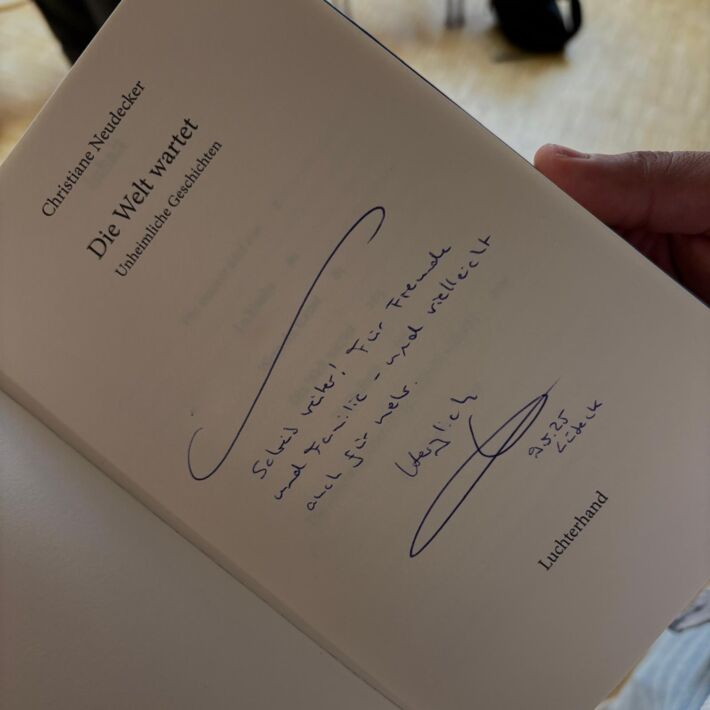 Christiane Neudecker
Die Welt wartet
Unheimliche Geschichten
Schreib weiter! Für Freunde
und Familie - und vielleicht
auch für mehr.
Herzlich
Lübeck
Luchterhand